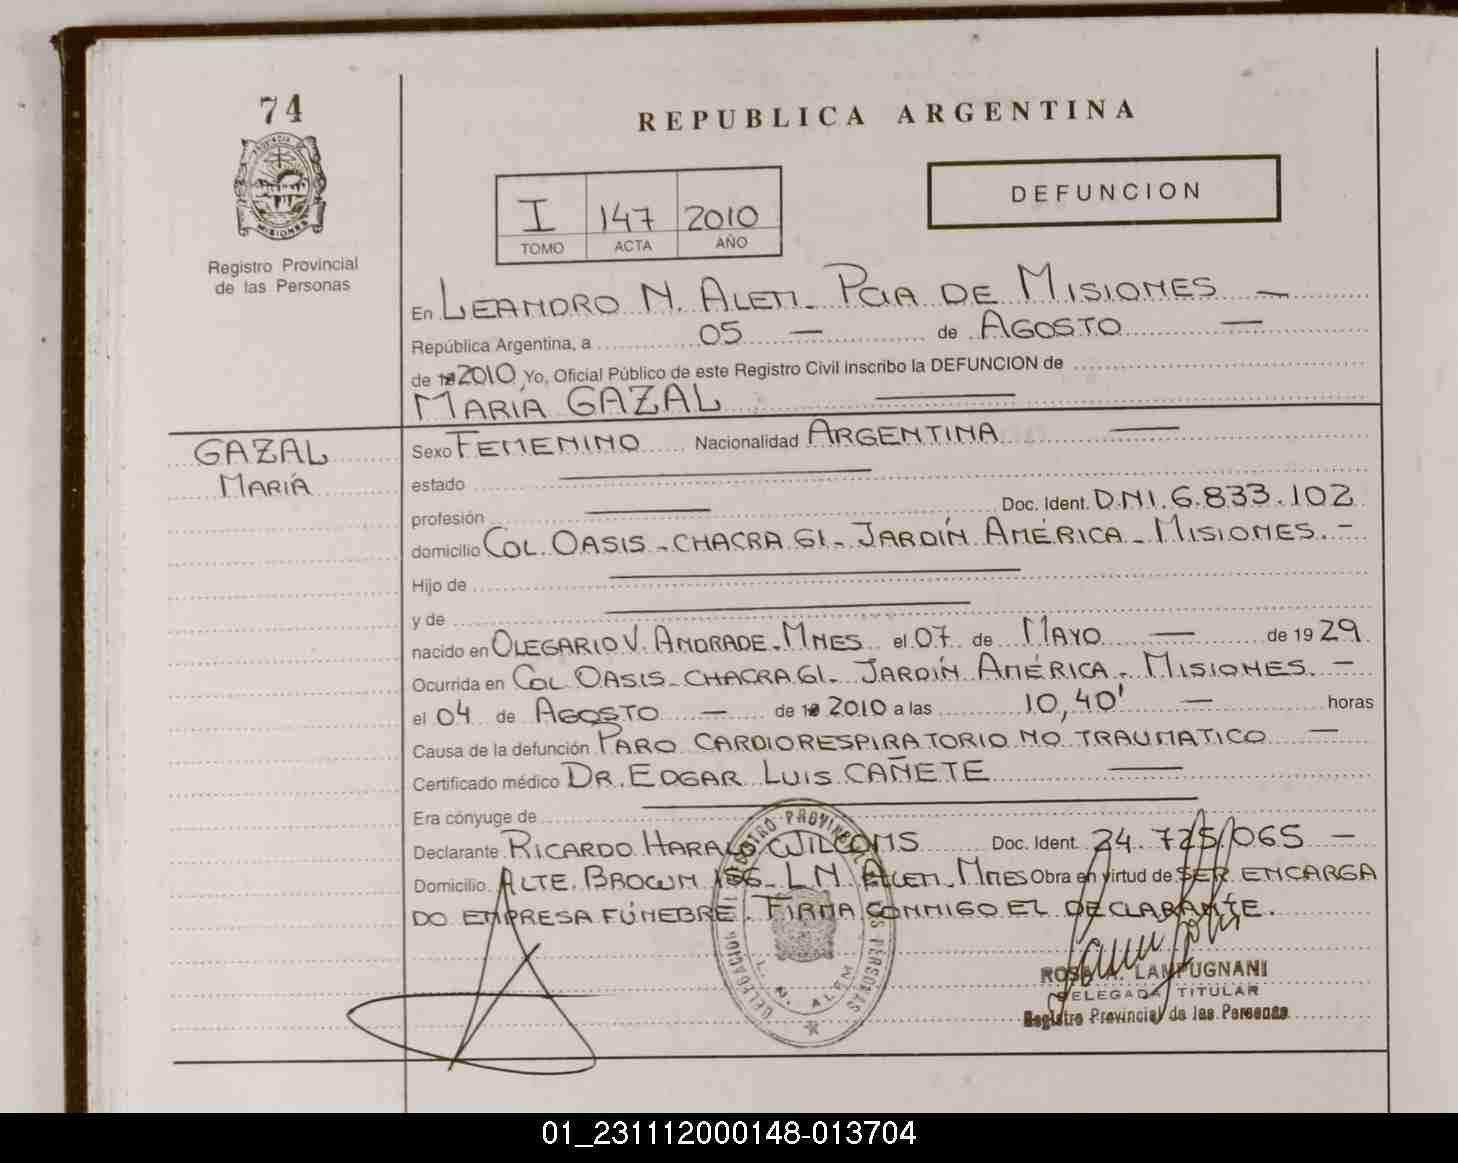 74
PROVINCIA DE
MISIONES
Registro Provincial
de las Personas
REPUBLICA ARGENTINA
I 147 2010
TOMO ACTA AÑO
DEFUNCION
En LEANDRO N. ALEM - PCIA DE MISIONES —
República Argentina, a 05 — de AGOSTO —
de 2010 Yo, Oficial Público de este Registro Civil inscribo la DEFUNCION de
MARÍA GAZAL —
GAZAL
MARÍA
Sexo FEMENINO Nacionalidad ARGENTINA —
estado —
profesión — Doc. Ident. D.N.I. 6.833.102
domicilio COL. OASIS - CHACRA 61 - JARDÍN AMÉRICA - MISIONES. -
Hijo de —
y de —
nacido en OLEGARIO V. ANDRADE - MNES el 07 de MAYO — de 1929
Ocurrida en COL OASIS - CHACRA 61 - JARDÍN AMÉRICA - MISIONES. -
el 04 de AGOSTO — de 2010 a las 10,40' — horas
Causa de la defunción PARO CARDIORESPIRATORIO NO TRAUMATICO —
Certificado médico DR. EDGAR LUIS CAÑETE —
Era cónyuge de —
Declarante RICARDO HARALD WILCOMS Doc. Ident. 24.725.065 —
Domicilio ALTE. BROWN 156 - L.N. ALEM - MNES Obra en virtud de SER ENCARGA
DO EMPRESA FÚNEBRE. FIRMA CONMIGO EL DECLARANTE.
REGISTRO PROVINCIAL DE LAS PERSONAS
DELEGACION
L. N. ALEM
ROSA A. LAMPUGNANI
DELEGADA TITULAR
Registro Provincial de las Personas
01_231112000148-013704